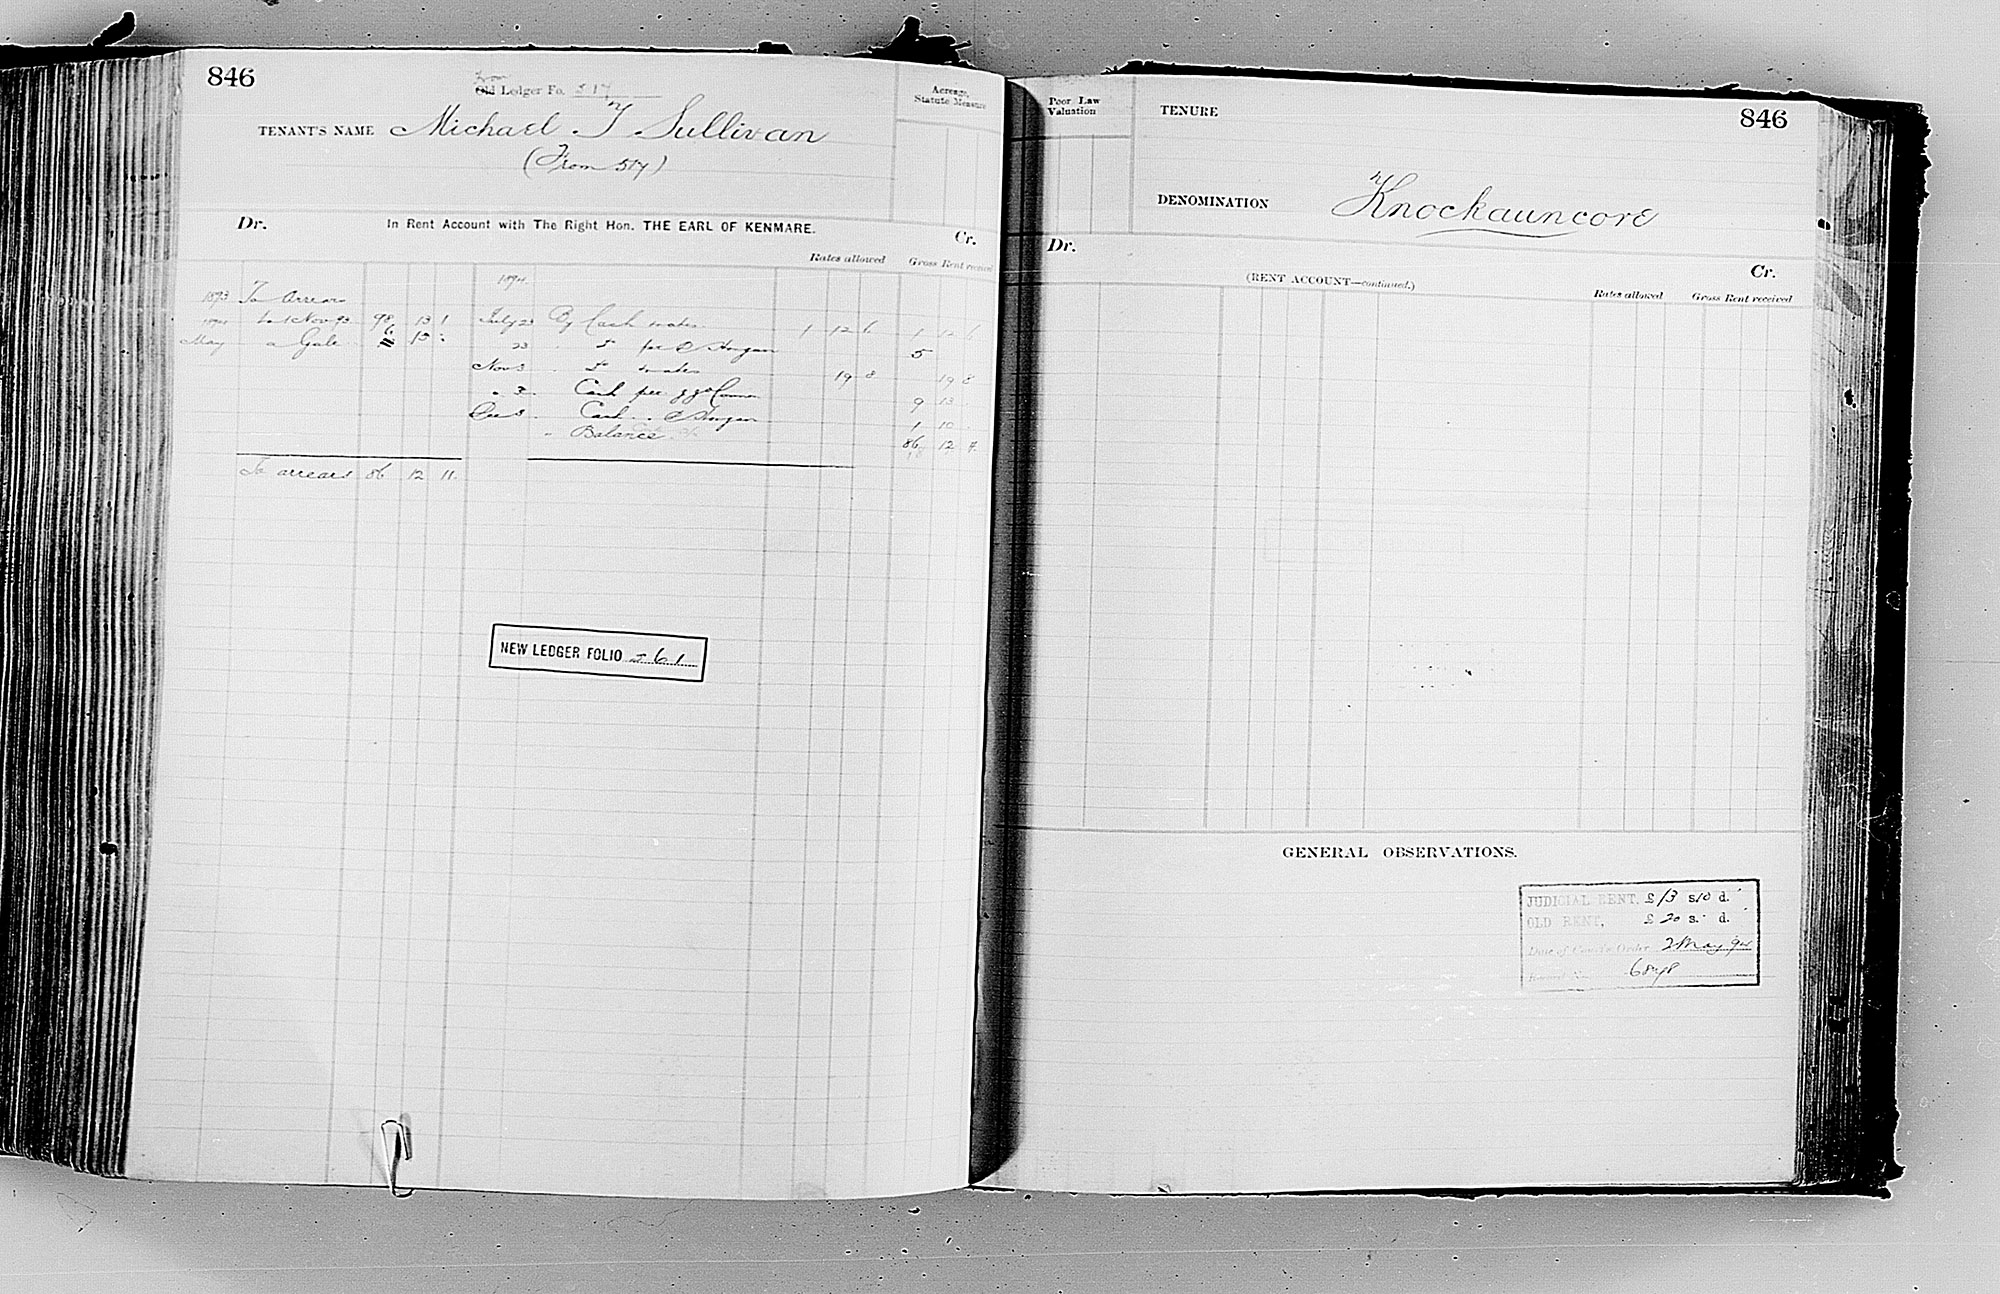 846
from
Old Ledger Fo. 517
TENANT'S NAME Michael T Sullivan
(From 517)
Acreage, Statute Measure
Dr. In Rent Account with The Right Hon. THE EARL OF KENMARE. Cr.
Rates allowed Gross Rent received
1894
1893 To Arrears
to 1 Nov 93 98 13 1 July 23 By Cash 1 12 6 1 12 6
1894 May a Gale 6 15 : 23 " Do per Horgan 5
Nov 3 " Do 19 8 19 8
" 3 " Cash per 9 13
Dec 3 " Cash " Horgan 1 10
" Balance 86 12 11
To arrears 86 12 11
NEW LEDGER FOLIO 561
Poor Law Valuation
TENURE
846
DENOMINATION Knockauncore
Dr.
(RENT ACCOUNT—continued.)
Cr.
Rates allowed Gross Rent received
GENERAL OBSERVATIONS.
JUDICIAL RENT, £ 13 s. 10 d. "
OLD RENT, £ 20 s. " d. "
Date of Court's Order 2 May 94
Record No.